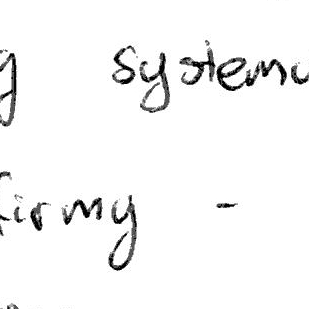 systemu
firmy -